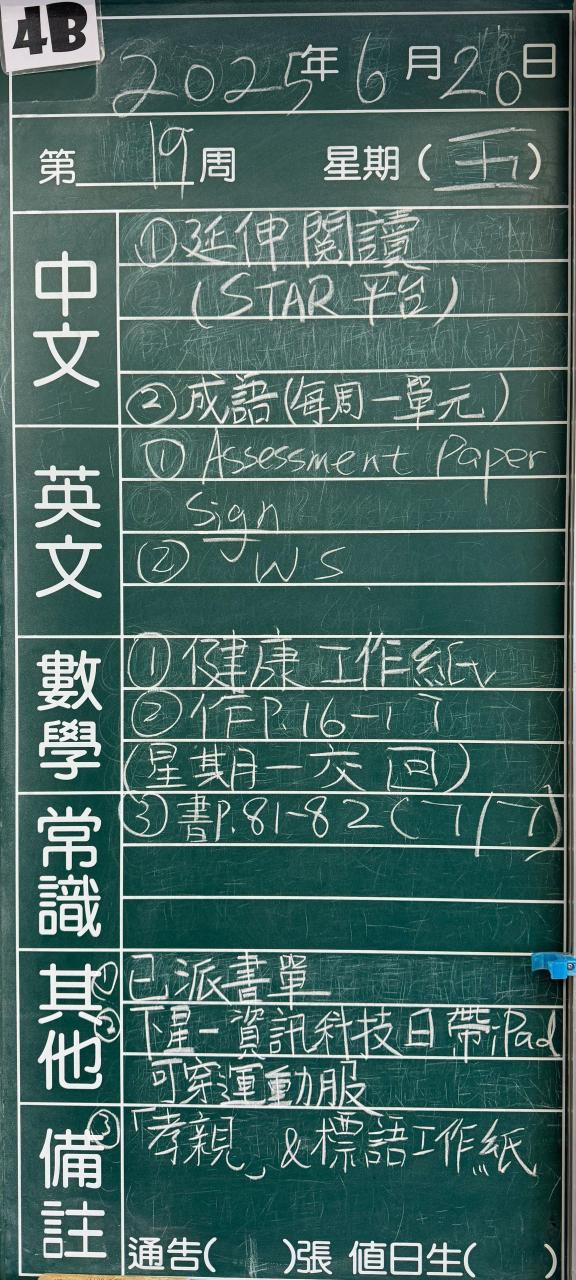 4B
2025年6月20日
第19周 星期(五)
中文
①延伸閱讀
(STAR 平台)
②成語(每周一單元)
英文
① Assessment Paper
Sign
② WS
數學
①健康工作紙
②作P.16-17
(星期一交回)
③書P.81-82(7/7)
常識
其他
①已派書單
②下星一資訊科技日帶iPad
可穿運動服
備註
③「孝親」&標語工作紙
通告( )張 值日生( )